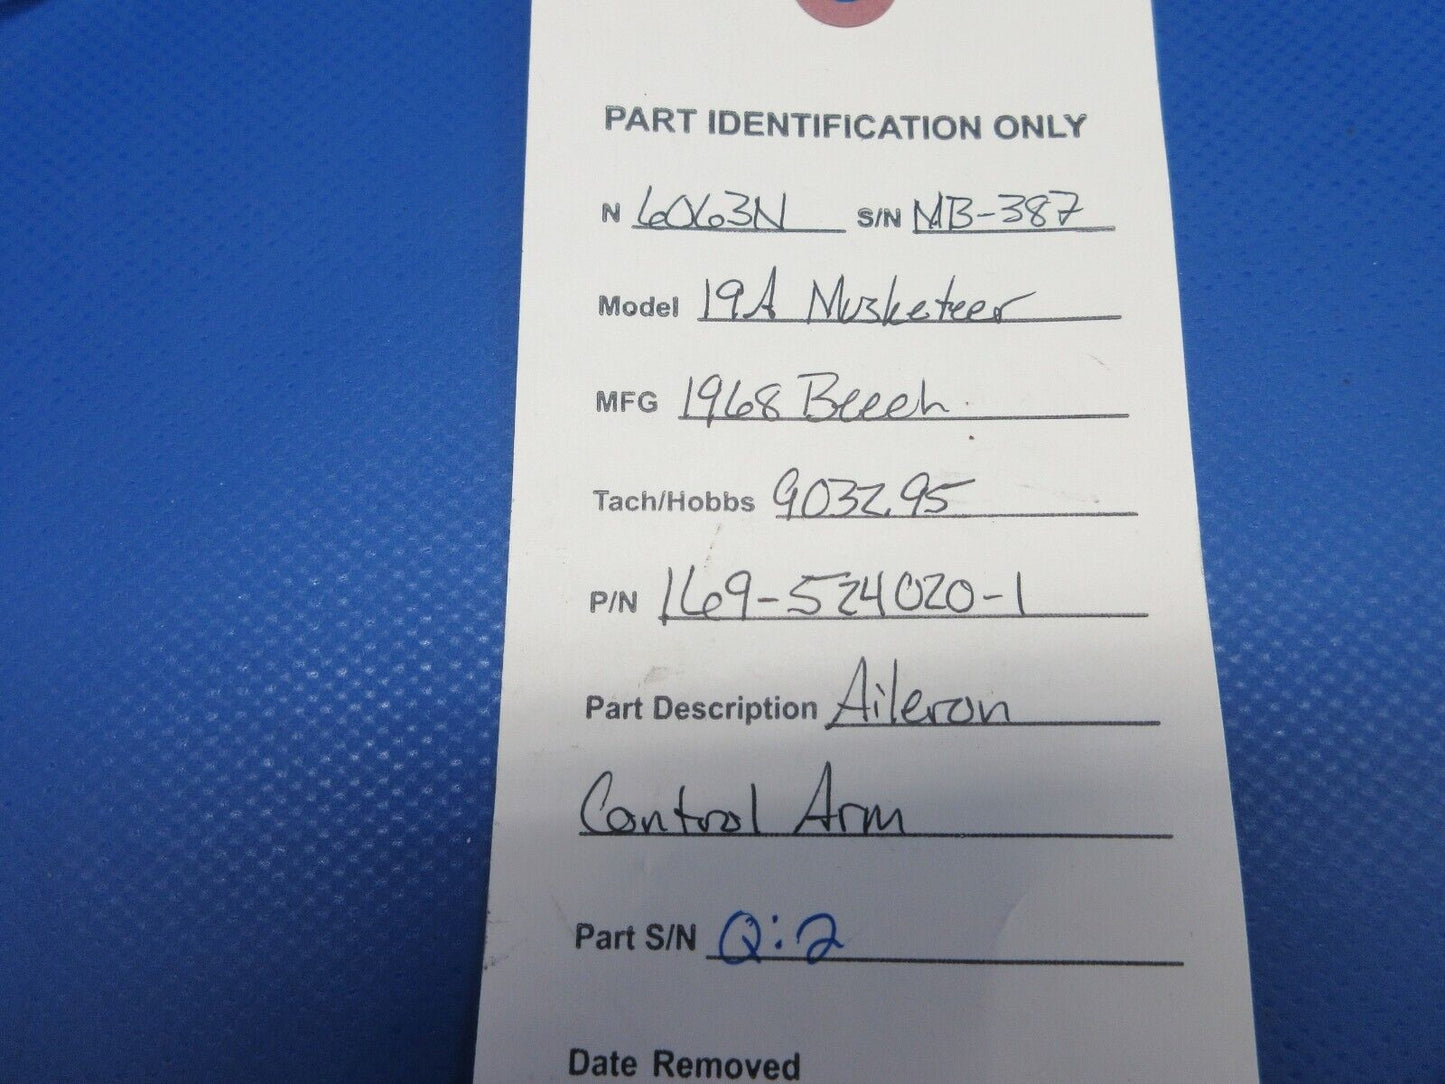 PART IDENTIFICATION ONLY
N 6063N S/N MB-387
Model 19A Musketeer
MFG 1968 Beech
Tach/Hobbs 9032.95
P/N 169-524020-1
Part Description Aileron
Control Arm
Part S/N Q:2
Date Removed